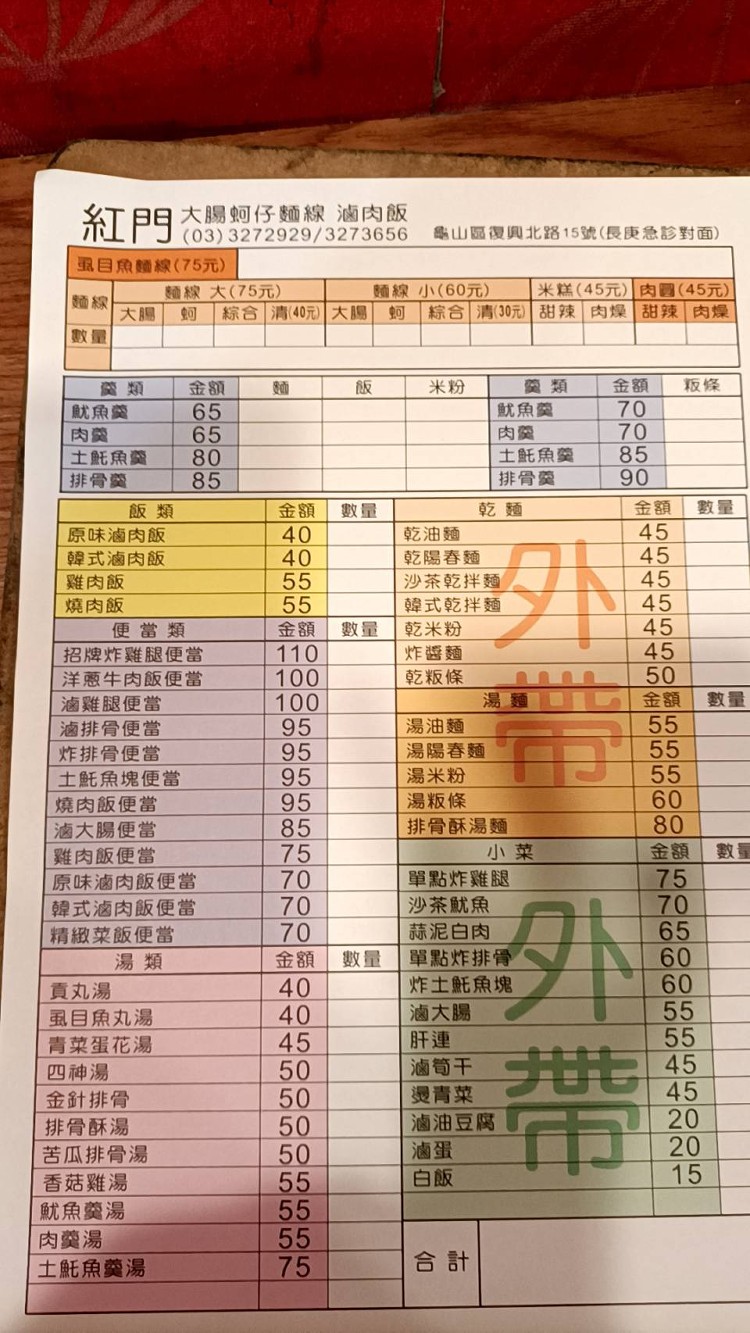 紅門 大腸蚵仔麵線 滷肉飯
(03)3272929/3273656 龜山區復興北路15號(長庚急診對面)
虱目魚麵線(75元)
麵線 麵線 大(75元) 麵線 小(60元) 米糕(45元) 肉圓(45元)
大腸 蚵 綜合 清(40元) 大腸 蚵 綜合 清(30元) 甜辣 肉燥 甜辣 肉燥
數量
羹類 金額 麵 飯 米粉 羹類 金額 粄條
魷魚羹 65 魷魚羹 70
肉羹 65 肉羹 70
土魠魚羹 80 土魠魚羹 85
排骨羹 85 排骨羹 90
飯類 金額 數量
原味滷肉飯 40
韓式滷肉飯 40
雞肉飯 55
燒肉飯 55
便當類 金額 數量
招牌炸雞腿便當 110
洋蔥牛肉飯便當 100
滷雞腿便當 100
滷排骨便當 95
炸排骨便當 95
土魠魚塊便當 95
燒肉飯便當 95
滷大腸便當 85
雞肉飯便當 75
原味滷肉飯便當 70
韓式滷肉飯便當 70
精緻菜飯便當 70
湯類 金額 數量
貢丸湯 40
虱目魚丸湯 40
青菜蛋花湯 45
四神湯 50
金針排骨 50
排骨酥湯 50
苦瓜排骨湯 50
香菇雞湯 55
魷魚羹湯 55
肉羹湯 55
土魠魚羹湯 75
乾麵 金額 數量
乾油麵 45
乾陽春麵 45
沙茶乾拌麵 45
韓式乾拌麵 45
乾米粉 45
炸醬麵 45
乾粄條 50
外帶
湯麵 金額 數量
湯油麵 55
湯陽春麵 55
湯米粉 55
湯粄條 60
排骨酥湯麵 80
小菜 金額 數量
單點炸雞腿 75
沙茶魷魚 70
蒜泥白肉 65
單點炸排骨 60
炸土魠魚塊 60
滷大腸 55
肝連 55
滷筍干 45
燙青菜 45
滷油豆腐 20
滷蛋 20
白飯 15
外帶
合計